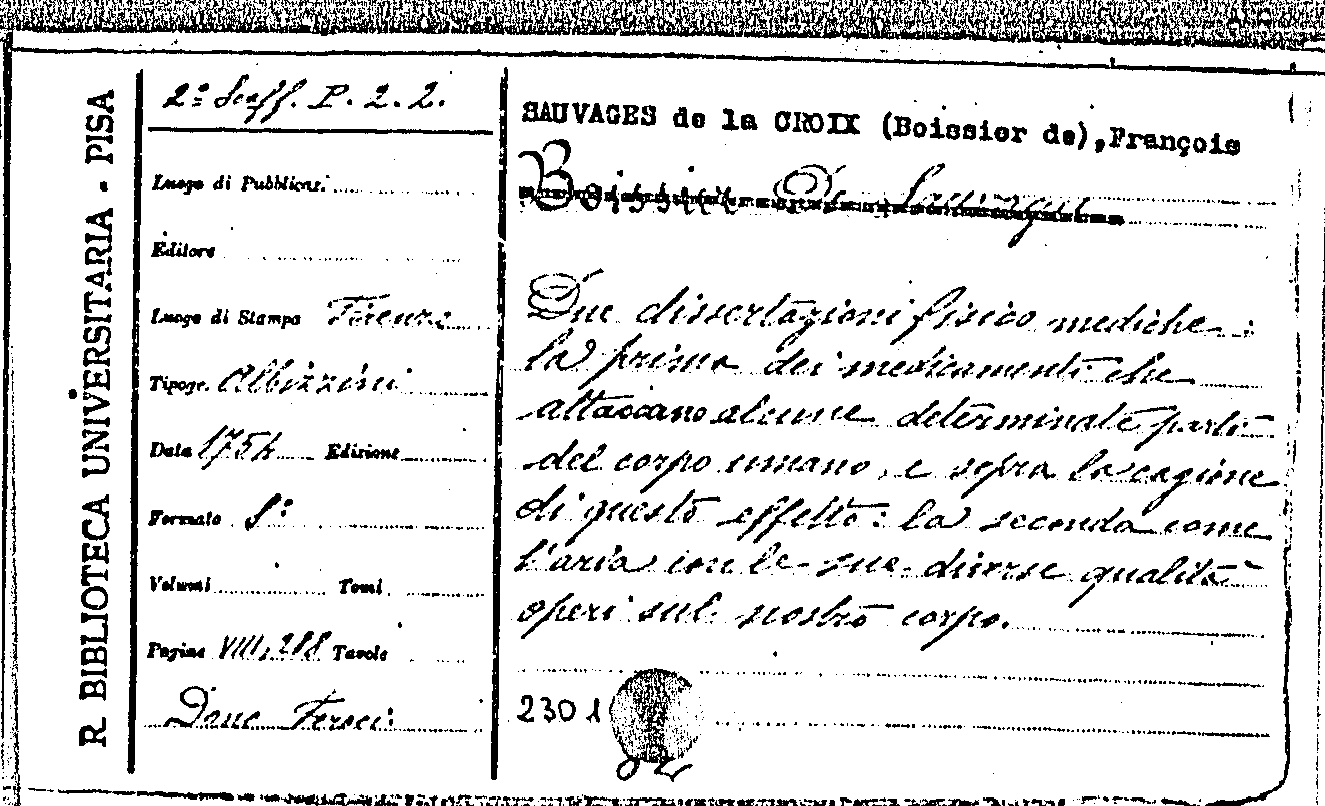 R BIBLIOTECA UNIVERSITARIA - PISA
2ª Scaff. P. 2. 2.
Luogo di Pubblicaz.
Editore
Luogo di Stampa Firenze
Tipogr. Albizzini
Data 1754 Edizione
Formato 8°
Volumi Tomi
Pagine VIII, 288 Tavole
Dono Feroci
SAUVAGES de la CROIX (Boissier de), François
Boissier De Sauvages
Due dissertazioni fisico mediche:
la prima dei medicamenti che
attaccano alcune determinate parti
del corpo umano, e sopra la cagione
di questo effetto: la seconda come
l'aria con le sue diverse qualità
operi sul nostro corpo.
2301